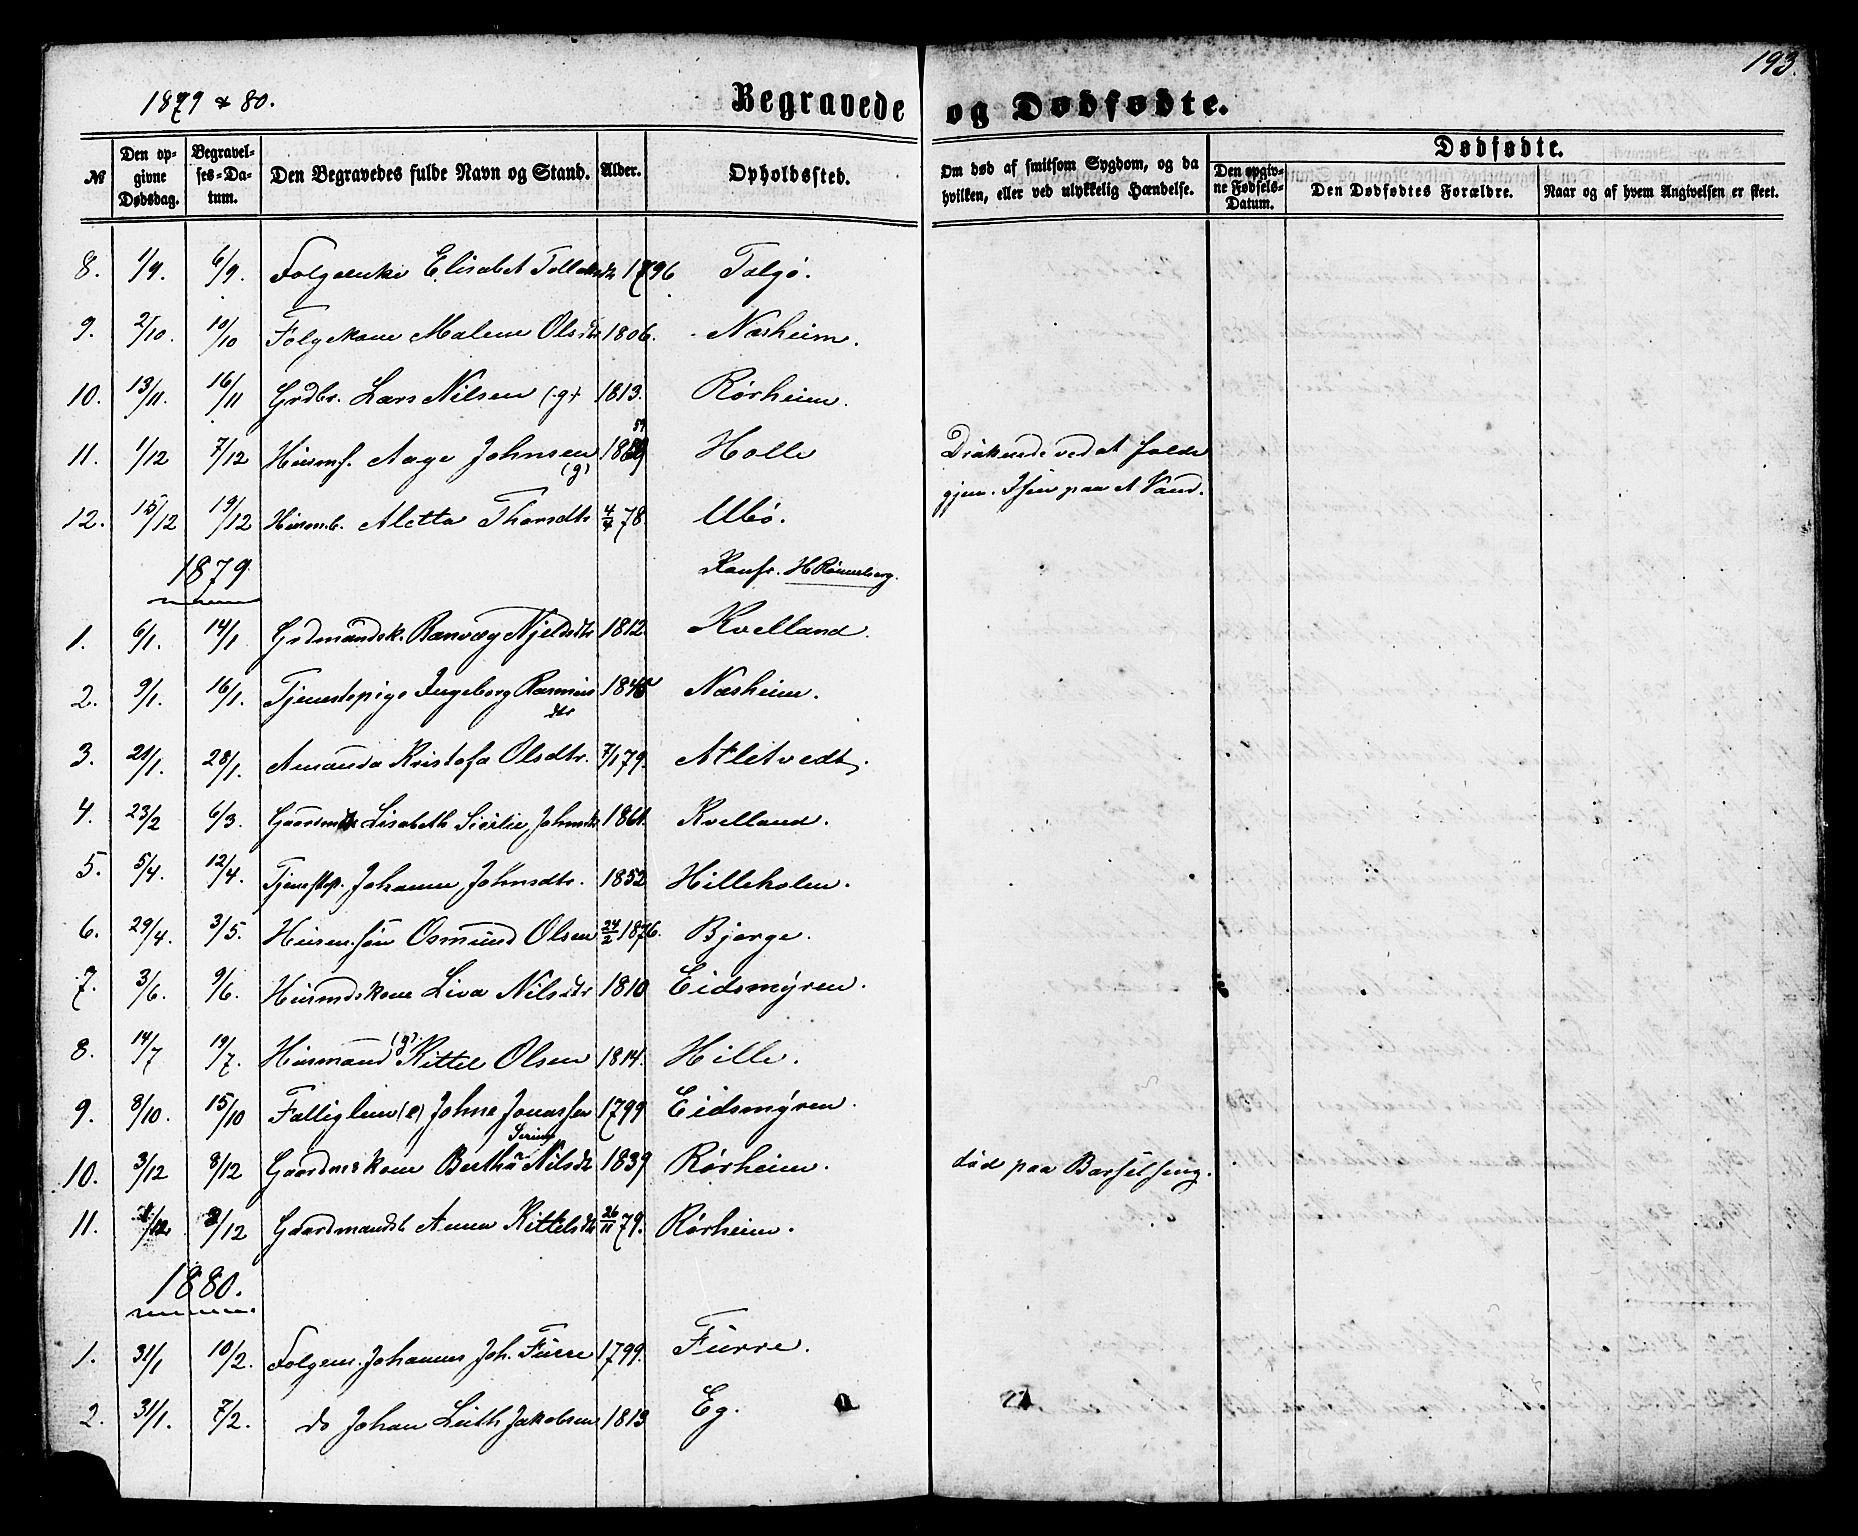 193.
1879 & 80.
Begravede og Dødfødte.
№ Den opgivne Dødsdag. Begravelses-Datum. Den Begravedes fulde Navn og Stand. Alder. Opholdssted. Om død af smitsom Sygdom, og da hvilken, eller ved ulykkelig Hændelse. Dødfødte. Den opgivne Fødsels-Datum. Den Dødfødtes Forældre. Naar og af hvem Angivelsen er skeet.
8. 1/9. 6/9. Folgeenke Elisabet 1796 Talgø.
9. 2/10. 10/10 Folgekone Malene Olsdtr 1806. Næsheim.
10. 13/11. 16/11 Grdbr. Lars Nilsen (g) 1813. Rørheim.
11. 1/12 7/12 Husmf. Aage Johnsen (g) Halle Druknede ved at falde
gjen. Isen paa et Vand.
12. 15/12 19/12 Husm.b. Aletta Thorsdtr 4/4 78. Ubø.
1879 Konfr. H Rønneberg.
1. 6/1. 14/1 Grdmandsk. Ranvæg Njeldsdtr 1812. Kvelland.
2. 9/1. 16/1. Tjenestepige Ingeborg Rasmusdtr 1845 Næsheim.
3. 21/1. 28/1. Amanda Kristofa Olsdtr. 7/1 79. Atletvedt.
4. 23/2 6/3. Gaardmdtr Lisabeth Sicilie Johnsdtr 1861. Kvelland.
5. 5/4. 12/4. Tjenestep. Johanne Johnsdtr. 1852 Hilleholen.
6. 29/4. 3/5. Husm.søn Osmund Olsen 24/2 1876. Bjerge.
7. 3/6. 9/6. Husmdskone Liva Nilsdtr 1810 Eidsmyren.
8. 14/7 19/7. Husmand (g) Kittel Olsen 1814. Hille.
9. 8/10. 15/10 Fattiglem (e) Johne Jonassen 1799 Eidsmyren.
10. 3/12 8/12 Gaardmskone Bertha Serina Nilsdtr 1839 Rørheim. død paa Barselseng.
11. 8/12 Gaardmandsb Anna Kittelsdtr 26/11 79. Rørheim.
1880.
1. 31/1 10/2. Folgem. Johannes Joh. Furre 1799. Furre.
2. 31/1. 7/2. do Johan Leith Jakobsen 1813 Eg.